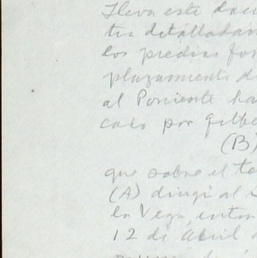 Lleva este docu
los predios for
plazamiento d
al Poniente ha
cado por Gilbe
(B)
que sobre el te
(A) dirigí al
la Vega, enton
12 de Abril d